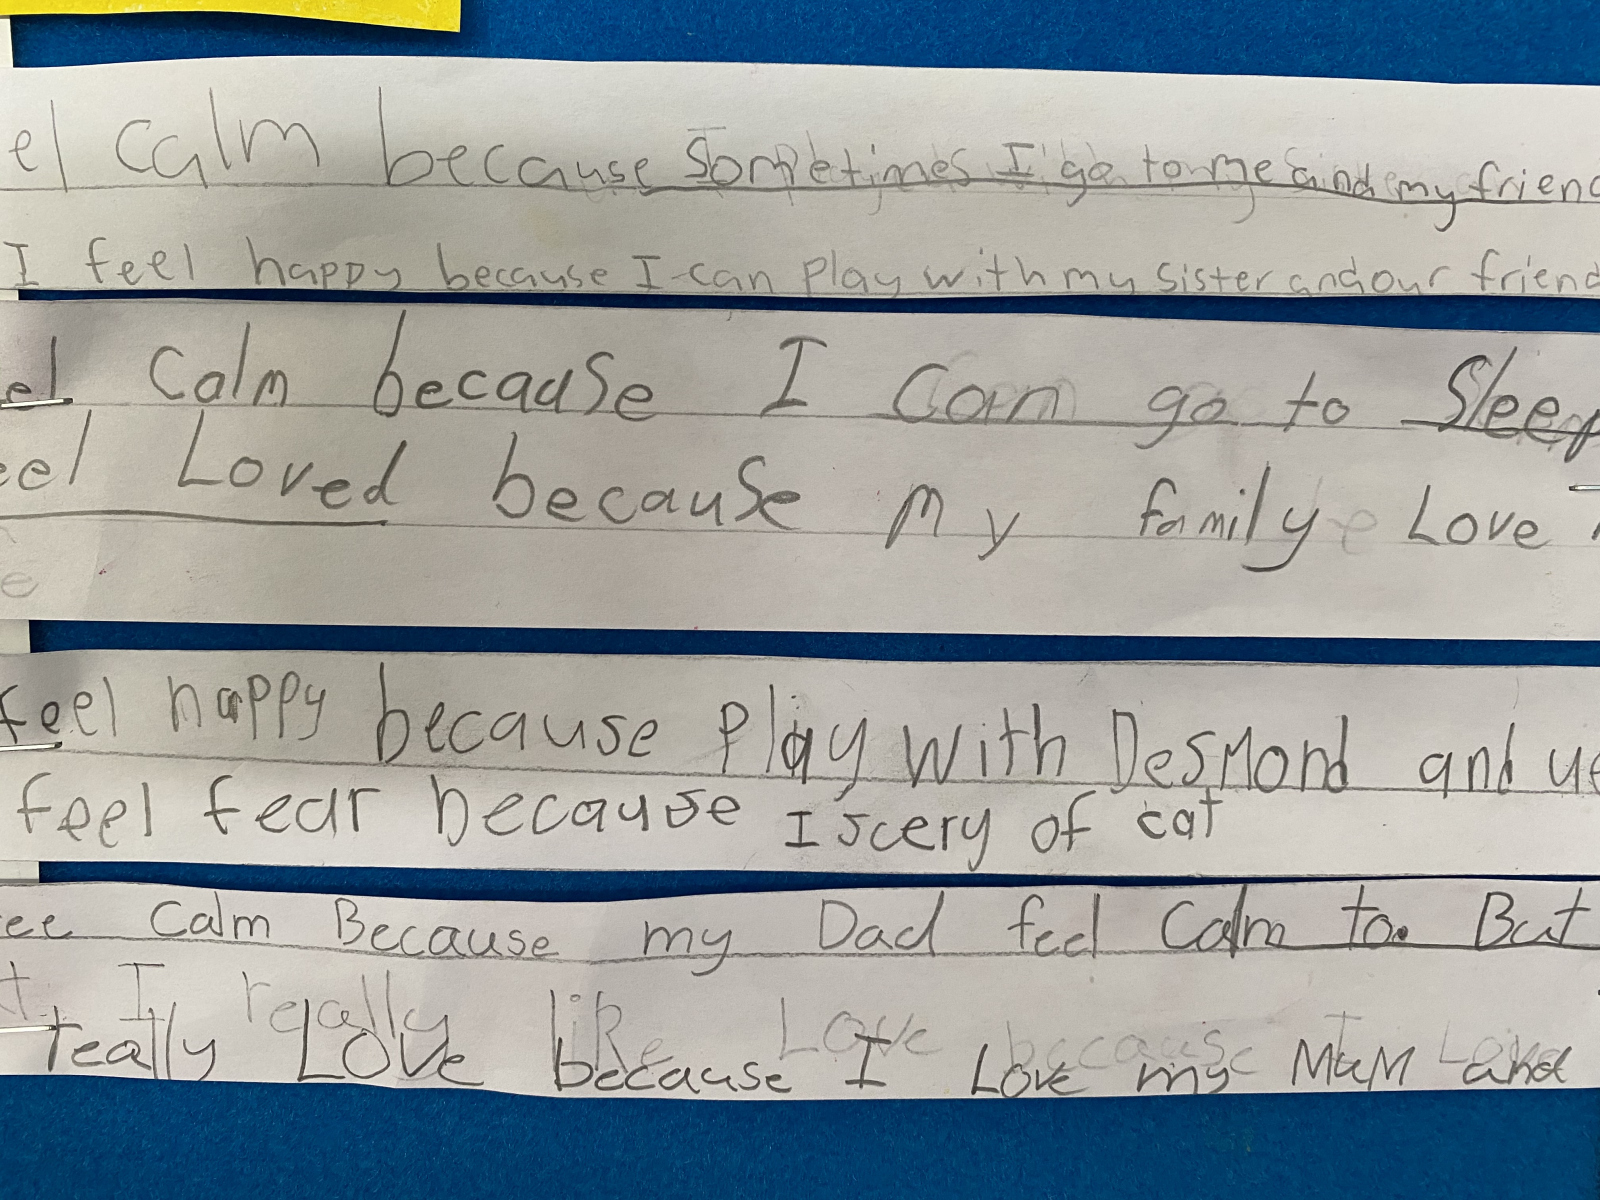 el calm because Sometimes I go to me and my friend
I feel happy because I can play with my sister and our friend
el calm because I can go to Sleep
eel Loved because my family Love
e
feel happy because Play with Desmond and
feel fear because I scery of cat
ee calm Because my Dad feel Calm to. But
t. I really like Love because I Lo
really Love because I Love my MuM and